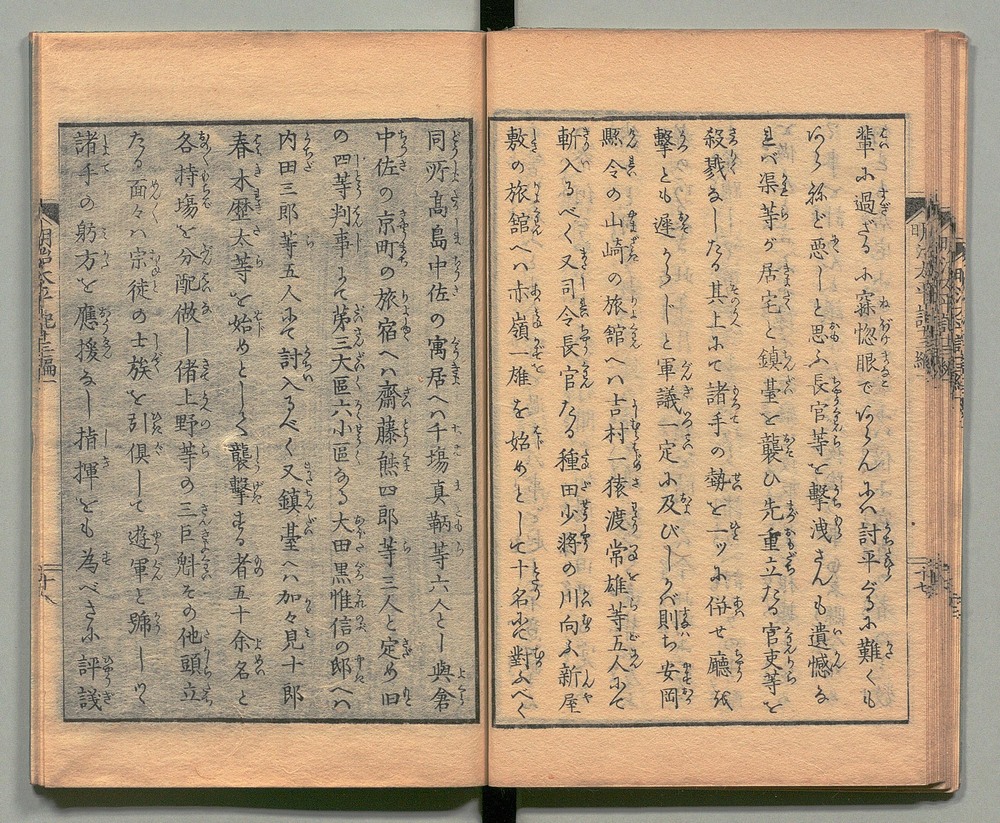 輩ふ過ざるふ寐惚眼であらんふハ討平ぐるふ難くも
あらねど悪しと思ふ長官等を撃洩さんも遺憾な
れバ渠等が居宅と鎮臺を襲ひ先重立たる官吏等を
殺戮なしたる其上にて諸手の勢を一ッふ併せ廳を
撃とも遅からじと軍議一定ふ及びしかバ則ち安岡
縣令の山崎の旅館へハ吉村一猿渡常雄等五人にて
斬入るべく又司令長官たる種田少将の川向ふ新屋
敷の旅館へハ赤嶺一雄を始めとして十名にて對ふべく
同所髙島中佐の寓居へハ千塲真鞆等六人とし與倉
中佐の京町の旅宿へハ齋藤熊四郎等三人と定め旧
の四等判事にて第三大區六小區なる大田黒惟信の邸へハ
内田三郎等五人にて討入るべく又鎮臺へハ加々見十郎
春木歴太等を始めとしく襲撃する者五十余名と
各持塲を分配做し偖上野等の三巨魁その他頭立
たる面々ハ宗徒の士族を引俱して遊軍と號しつく
諸手の躬方を應援なし指揮をも為べきふ評議